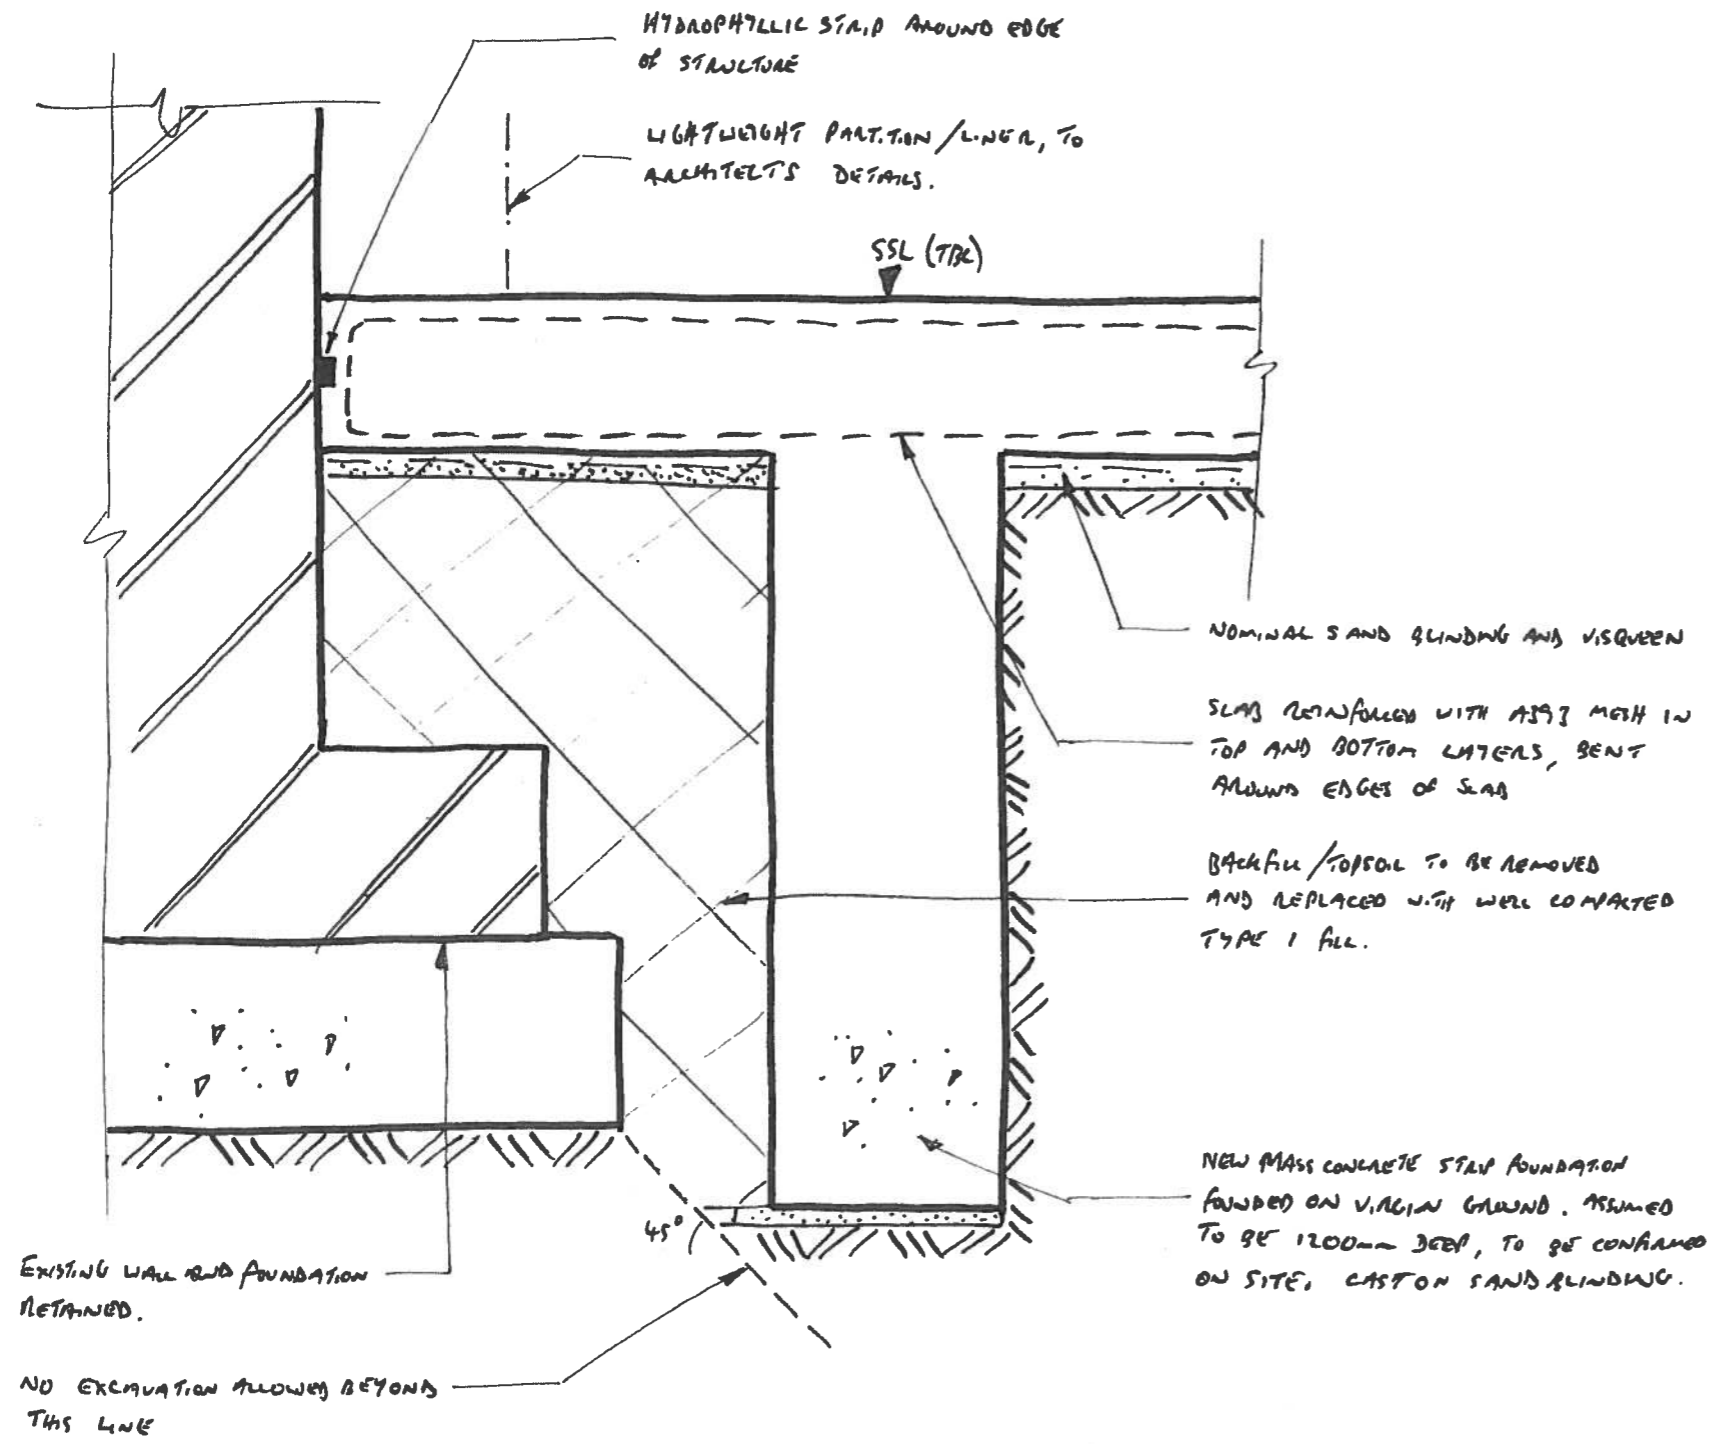 HYDROPHYLLIC STRIP AROUND EDGE
OF STRUCTURE
LIGHTWEIGHT PARTITION/LINER, TO
ARCHITECTS DETAILS.
SSL (TBC)
NOMINAL SAND BLINDING AND VISQUEEN
SLAB REINFORCED WITH A393 MESH IN
TOP AND BOTTOM LAYERS, BENT
AROUND EDGES OF SLAB
BACKFILL/TOPSOIL TO BE REMOVED
AND REPLACED WITH WELL COMPACTED
TYPE 1 FILL.
NEW MASS CONCRETE STRIP FOUNDATION
FOUNDED ON VIRGIN GROUND. ASSUMED
TO BE 1200mm DEEP, TO BE CONFIRMED
ON SITE. CAST ON SAND BLINDING.
45°
EXISTING WALL AND FOUNDATION
RETAINED.
NO EXCAVATION ALLOWED BEYOND
THIS LINE